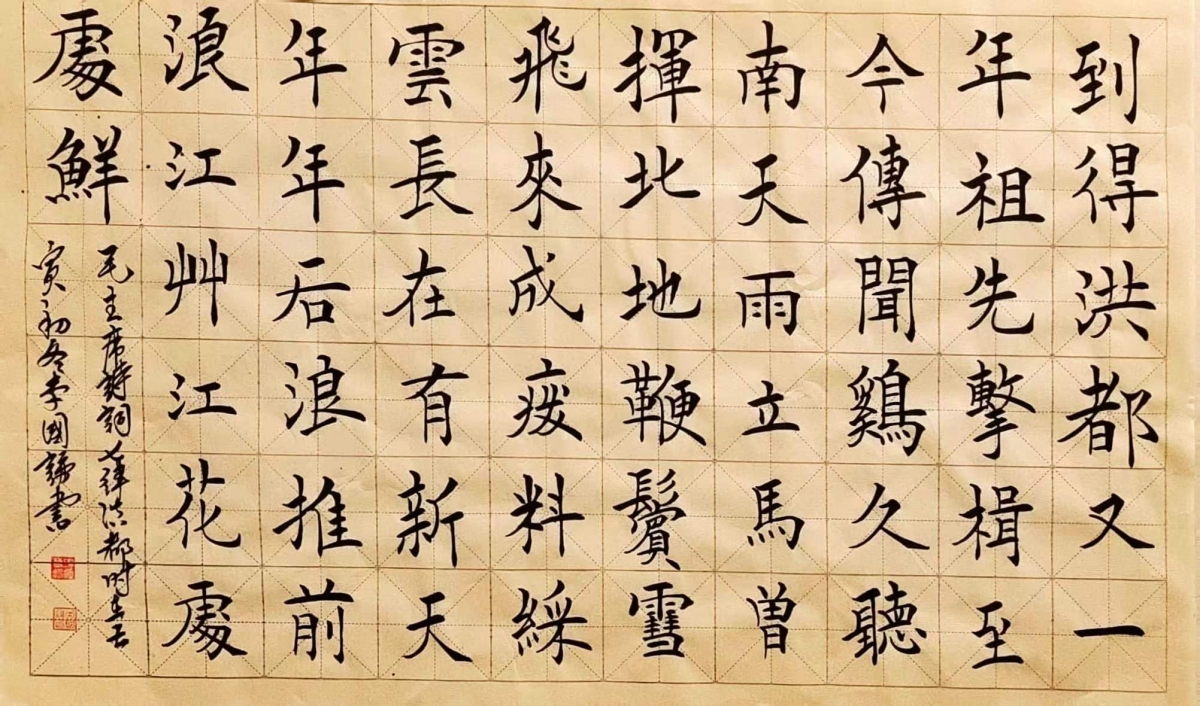 到得洪都又一
年祖先擊楫至
今傳聞鷄久聽
南天雨立馬曽
揮北地鞭鬢雪
飛來成废料綵
雲長在有新天
年年后浪推前
浪江艸江花處
處鮮
毛主席詩詞七律洪都时在壬
寅初冬李國書